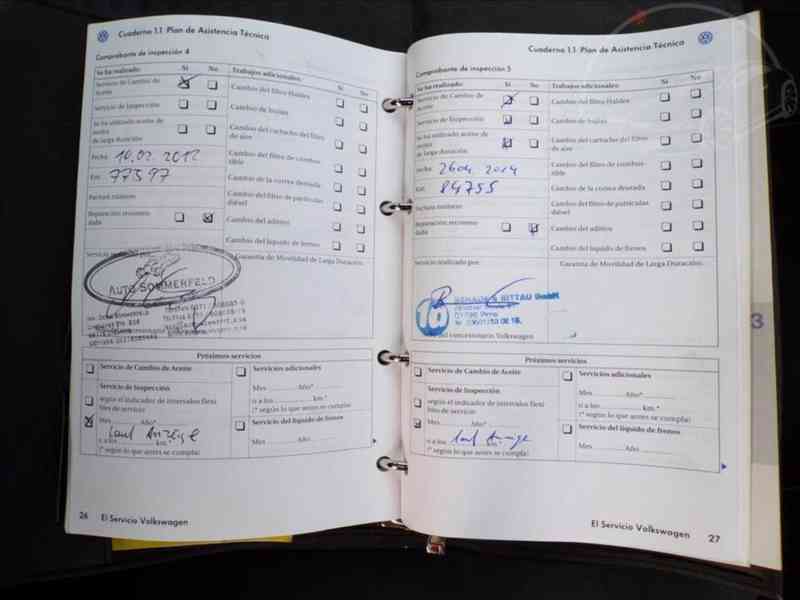 Cuaderno 1.1 Plan de Asistencia Técnica
Comprobante de inspección 4
Se ha realizado: Sí No Trabajos adicionales: Sí No
Servicio de Cambio de Aceite
Servicio de Inspección
Se ha utilizado aceite de motor de larga duración
Fecha 10.02.2012
Km. 77597
Factura número:
Reparación recomendada
Cambio del filtro Haldex
Cambio de bujías
Cambio del cartucho del filtro de aire
Cambio del filtro de combustible
Cambio de la correa dentada
Cambio del filtro de partículas diésel
Cambio del aditivo
Cambio del líquido de frenos
Servicio realizado por:
Garantía de Movilidad de Larga Duración:
AUTO SOMMERFELD
Próximos servicios
Servicio de Cambio de Aceite
Servicio de Inspección
según el indicador de intervalos flexibles de servicio
Mes ........ Año*
Laut Anzeige
o a los ........ km.*
(* según lo que antes se cumpla)
Servicios adicionales
Mes ........ Año*
o a los ........ km.*
(* según lo que antes se cumpla)
Servicio del líquido de frenos
Mes ........ Año
26 El Servicio Volkswagen
Cuaderno 1.1 Plan de Asistencia Técnica
Comprobante de inspección 5
Se ha realizado: Sí No Trabajos adicionales: Sí No
Servicio de Cambio de Aceite
Servicio de Inspección
Se ha utilizado aceite de motor de larga duración
Fecha 26.04.2014
Km. 84755
Factura número:
Reparación recomendada
Cambio del filtro Haldex
Cambio de bujías
Cambio del cartucho del filtro de aire
Cambio del filtro de combustible
Cambio de la correa dentada
Cambio del filtro de partículas diésel
Cambio del aditivo
Cambio del líquido de frenos
Servicio realizado por:
Garantía de Movilidad de Larga Duración:
BITTAU GmbH
del concesionario Volkswagen
Próximos servicios
Servicio de Cambio de Aceite
Servicio de Inspección
según el indicador de intervalos flexibles de servicio
Mes ........ Año*
Laut Anzeige
o a los ........ km.*
(* según lo que antes se cumpla)
Servicios adicionales
Mes ........ Año*
o a los ........ km.*
(* según lo que antes se cumpla)
Servicio del líquido de frenos
Mes ........ Año
El Servicio Volkswagen 27
3